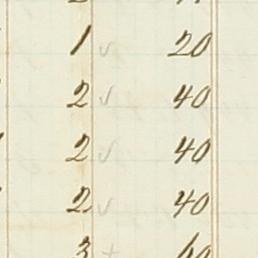 1 ✓ 20
2 ✓ 40
2 ✓ 40
2 ✓ 40
3 + 60